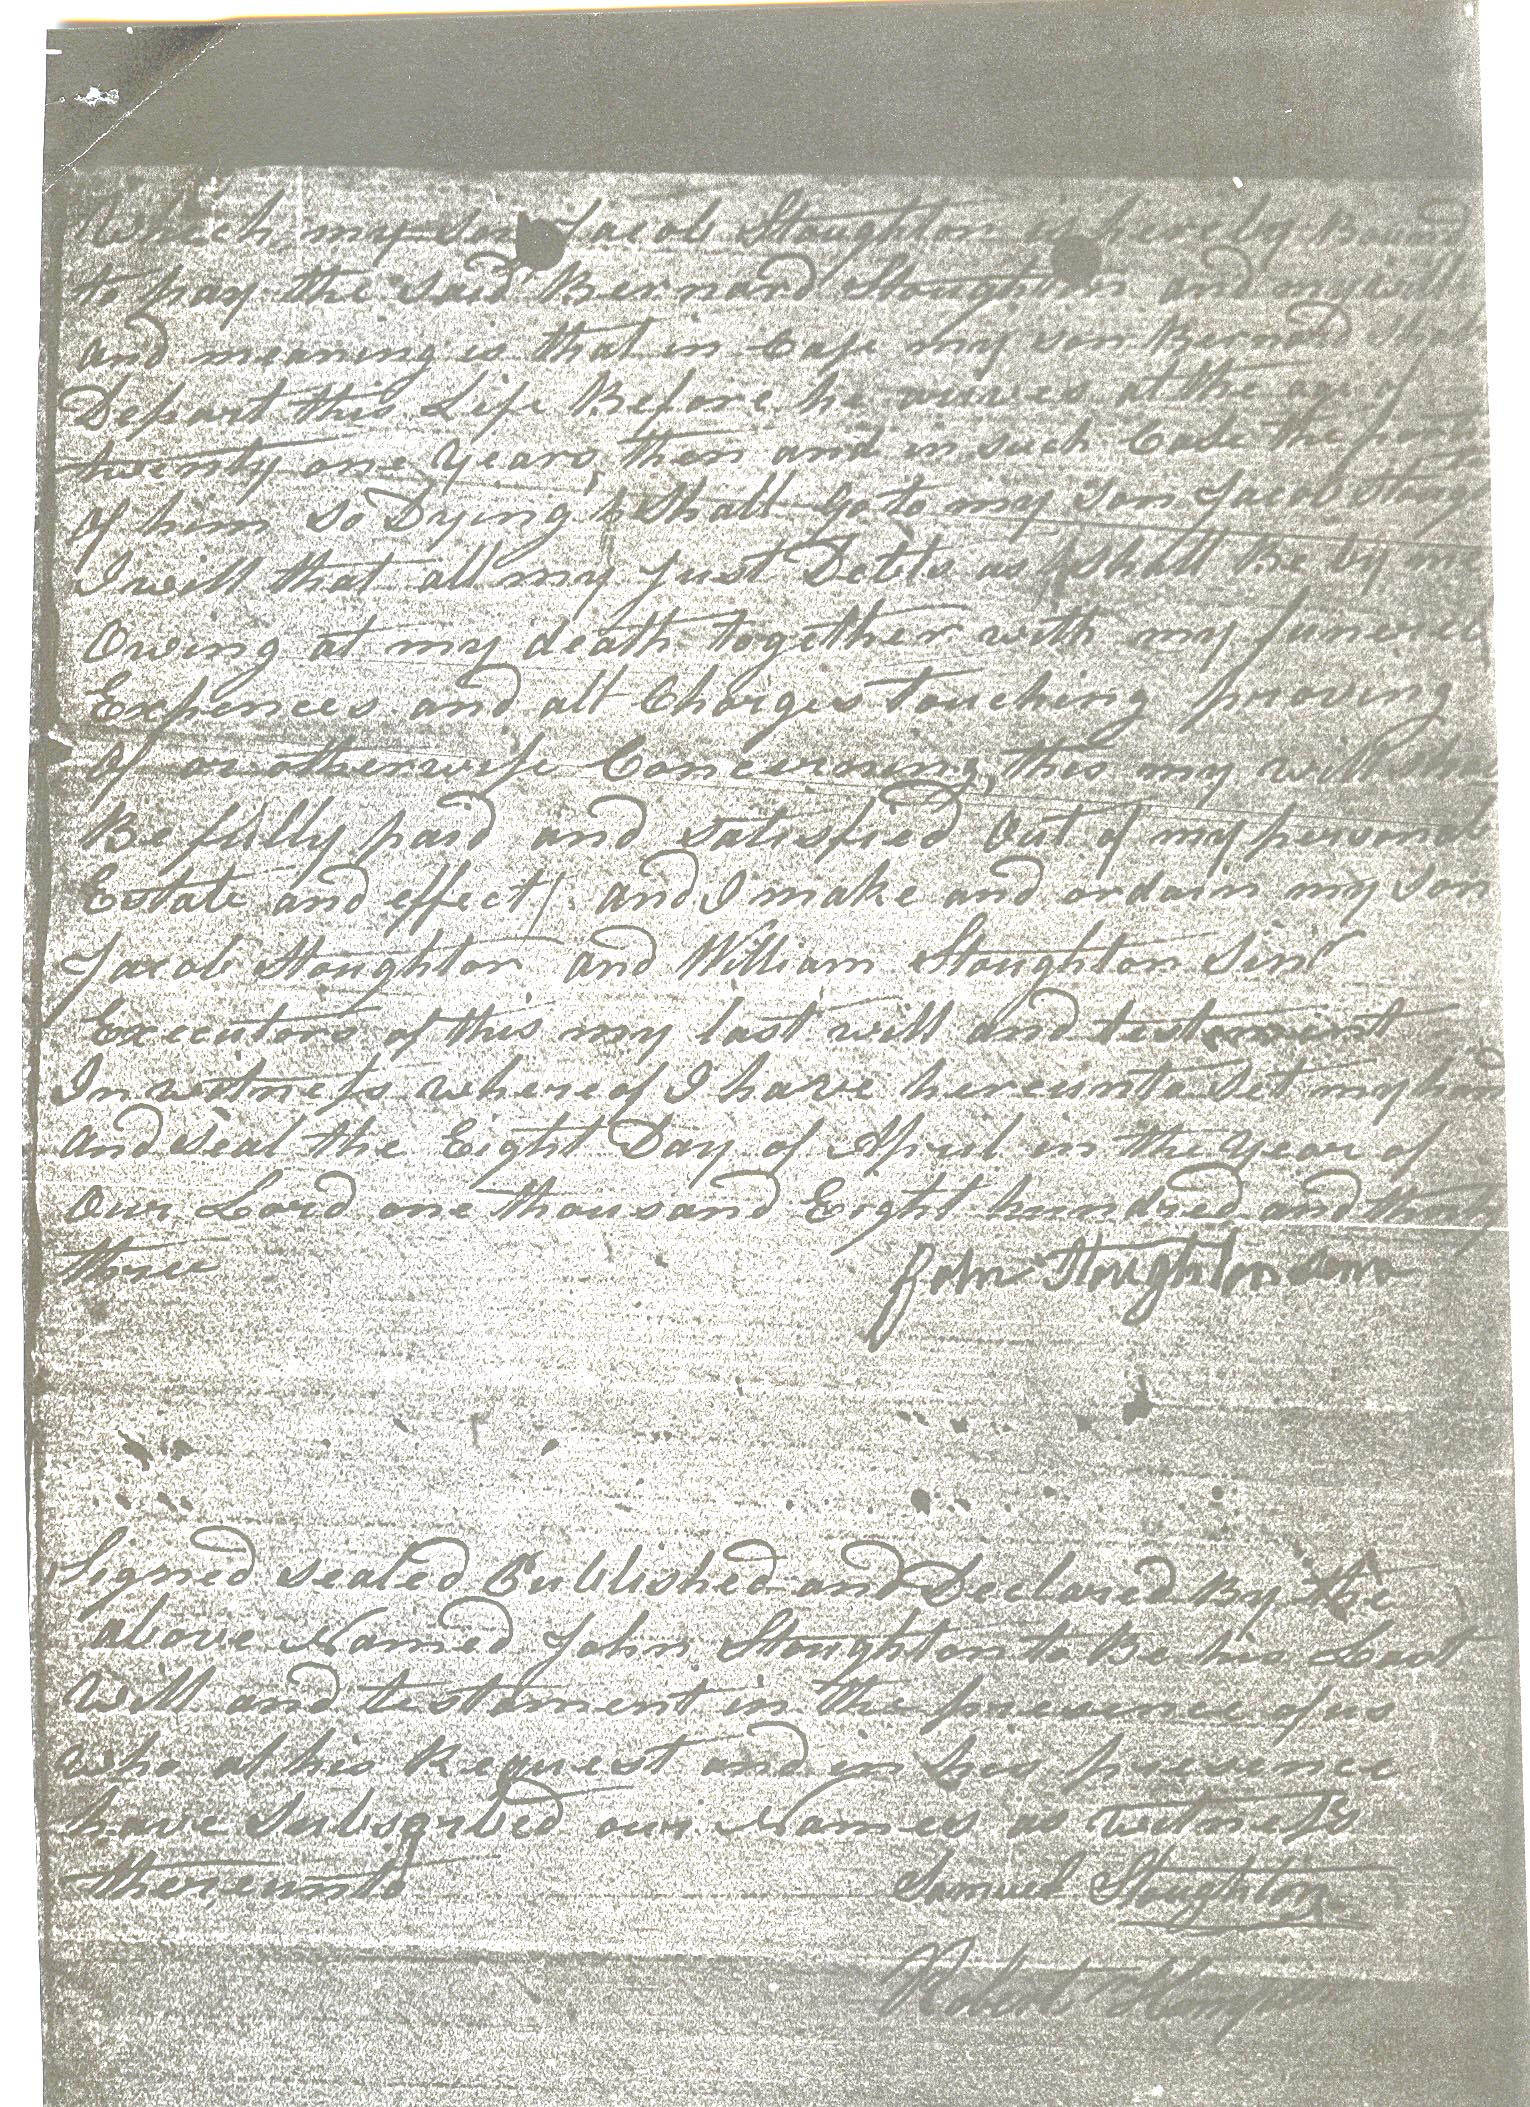 Which my son Jacob Stoughton is hereby Bound
to pay the said Bernard Stoughton and my will
and meaning is that in Case my son Bernard shall
Depart this Life Before he arives at the age of
twenty one Years, then and in such Case the
of him so Dying shall go to my son Jacob
I will that all my just Debts as shall Be by me
Owing at my death together with my funerel
Expences and all Charges touching proving
of or otherwise Concerning this my will
Be fully paid and satisfied Out of my
Estate and effects and I make and ordain my son
Jacob Stoughton and William Stoughton Sinr
Executors of this my last will and testament
In witness whereof I have hereunto set my
and seal the Eight Day of April in the Year of
Our Lord one thousand Eight hundred and thirty
three John Stoughton
Signed sealed Published and Declared By the
above Named John Stoughton to Be his Last
Will and testament in the presence of us
who at his Request and in his presence
have Subscribed our Names as witness
thereunto Samuel Stoughton
Robert